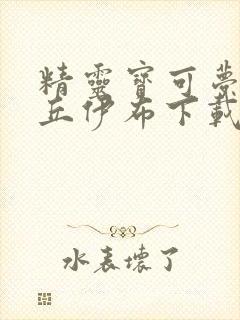 精靈寶可夢
丘伊布下載
水表壞了